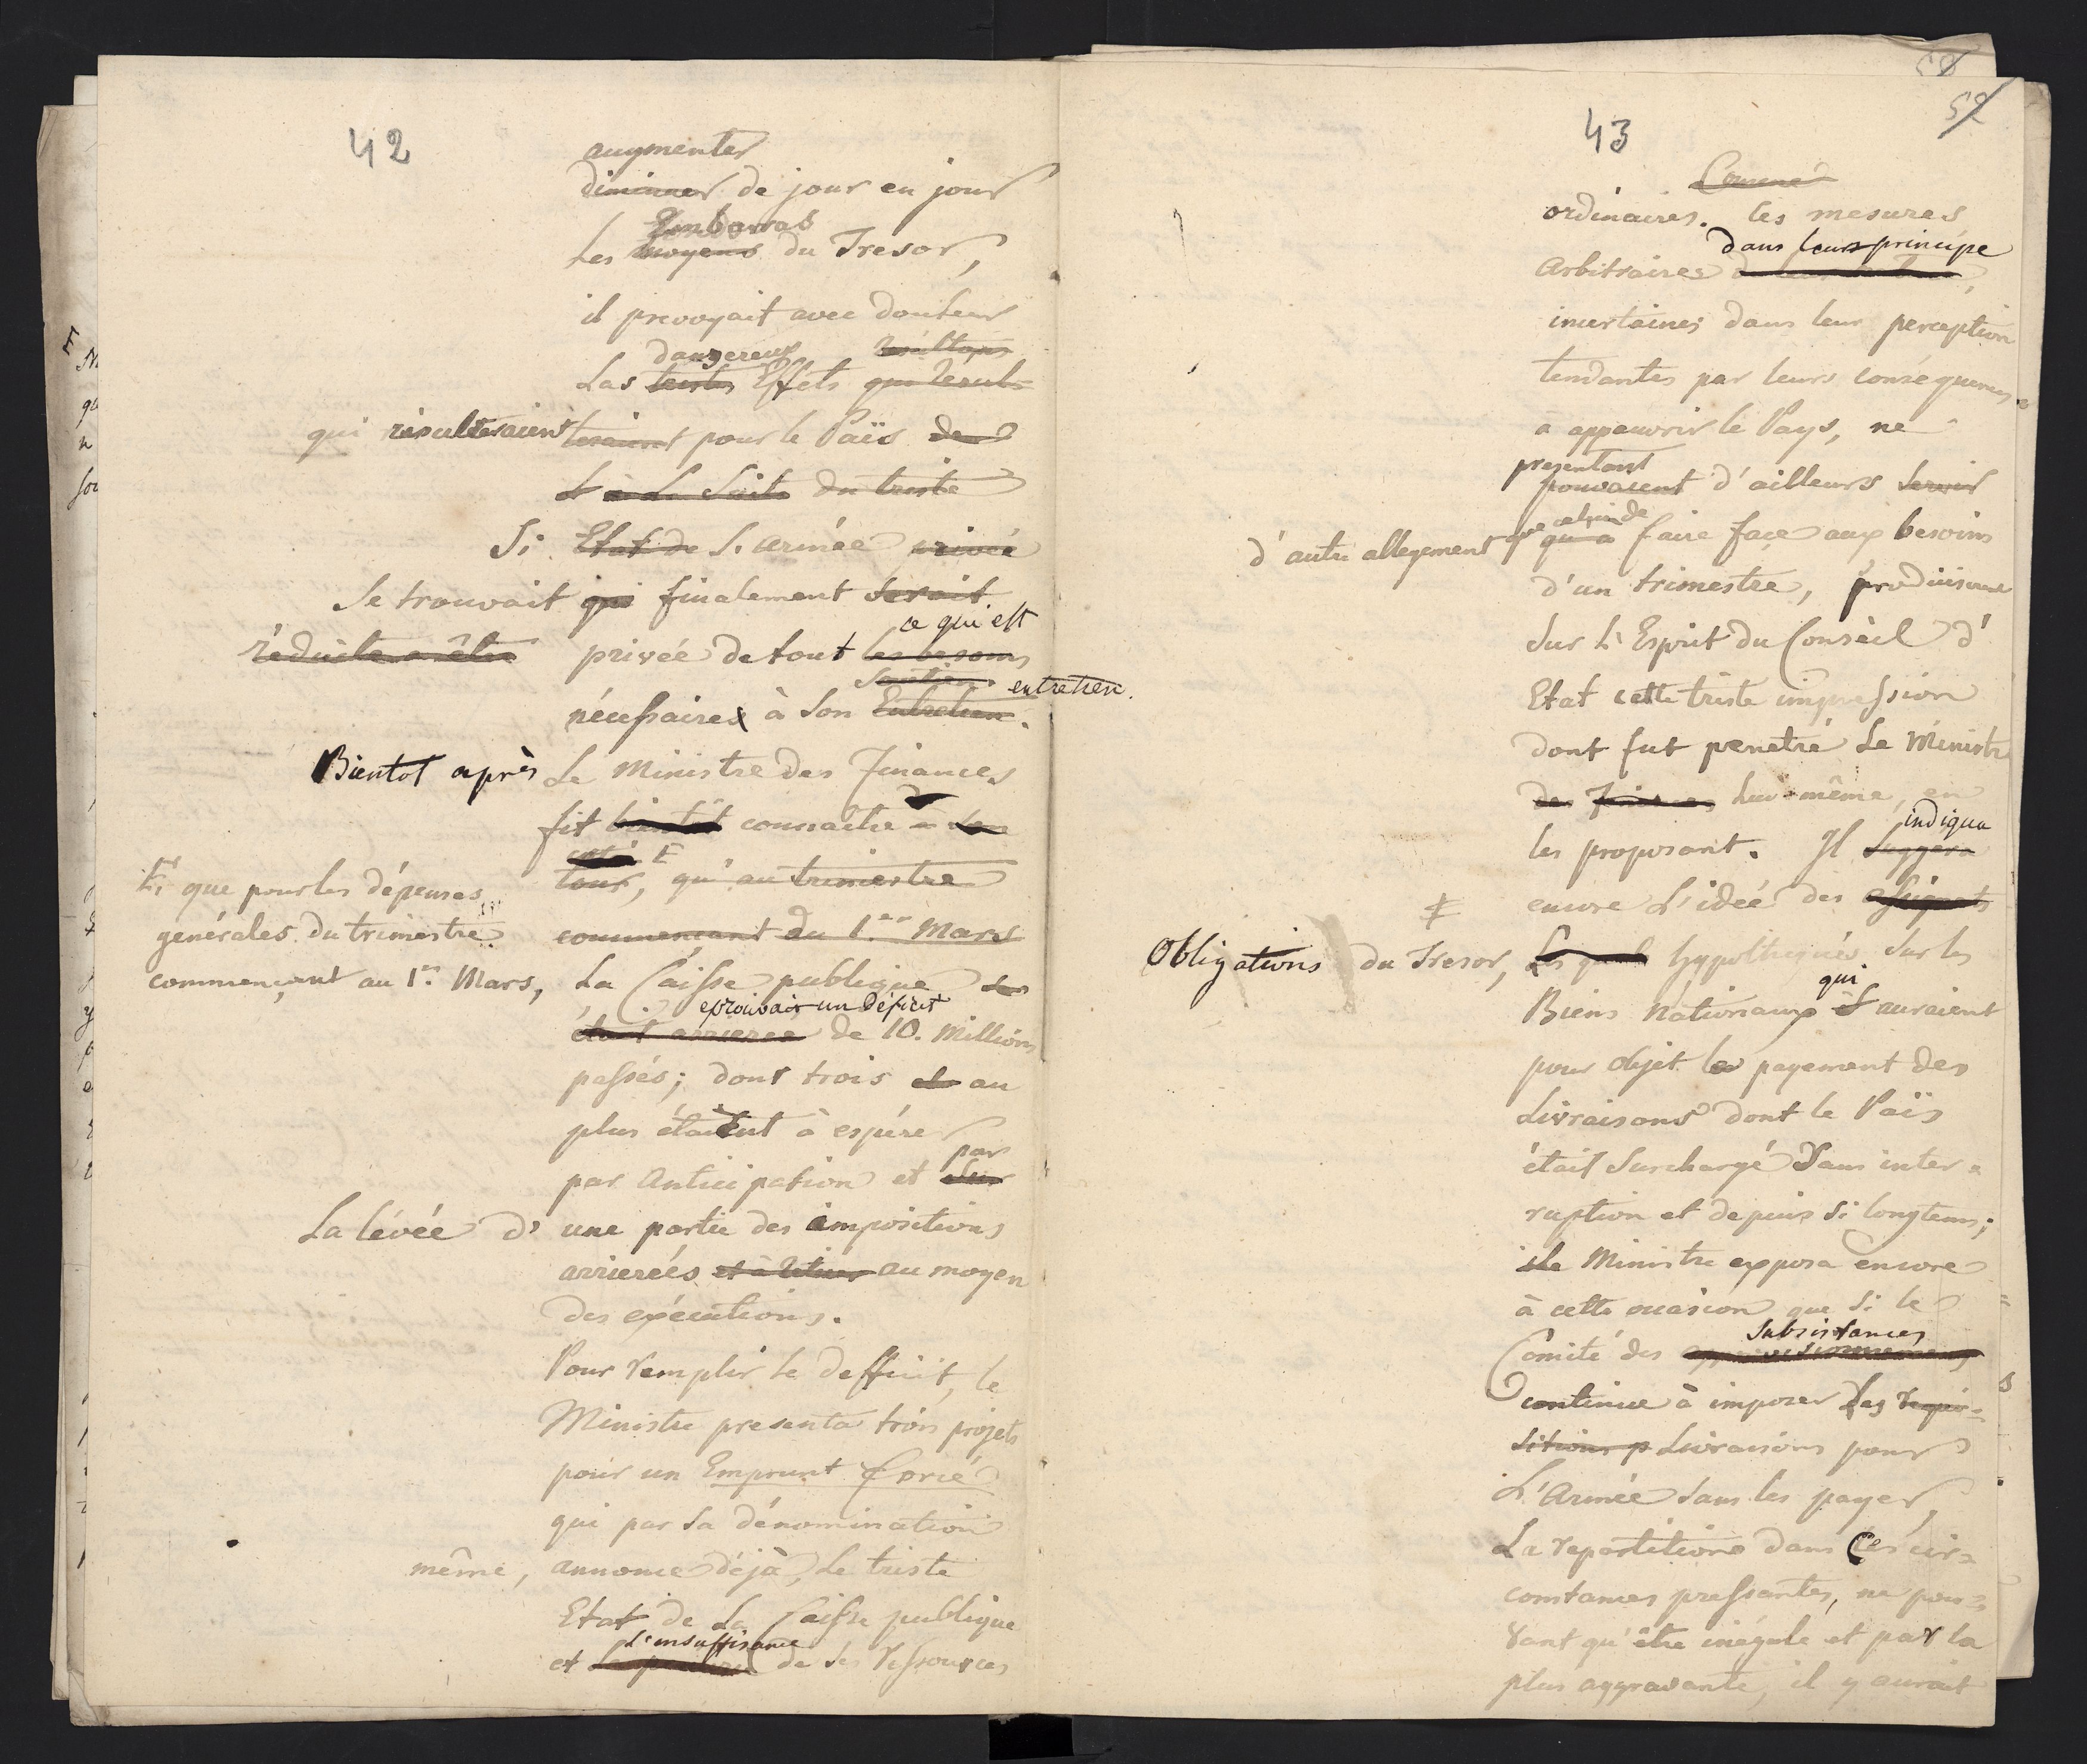 42
augmenter
diminuer de jour en jour
Embarras
Les moyens du Tresor,
il prevoyait avec douleur
dangereux resultans
Les tristes Effets qui resul-
qui résulteraient teraient pour le Païs de
L à la Suite du triste
Si Etat de L'armée privée
Se trouvait qui finalement serait
ce qui est
réduite a être privée de tout les besoins
Soutien entretien.
nécessaires à Son Entretien.
Bientot après Le Ministre des Finances
fit bientôt connaitre à son
coté
tour, qu'au trimestre
que pour les dépenses
générales du trimestre commençant du 1.er Mars
commençant au 1.er Mars, La Caisse publique se
eprouvait un Deficit
était arrierée de 10. Millions
passés; dont trois et au
plus étaient à espérer
par
par Anticipation et sur
La levée d' une partie des impositions
arrierées et à retirer au moyen
des exécutions.
Pour remplir le defficit, le
Ministre presenta trois projets
pour un Emprunt forcé
qui par sa dénomination
même, annonce déjà, Le triste
Etat de La Caisse publique
L'insuffisance
et de ses ressources
58
52
43
ordinaires. les mesures
dans leurs principe
Arbitraires
incertaines dans leur perception
tendantes par leurs conséquences
a appauvrir le Pays, ne
presentant
pouvaient d'ailleurs servir
celui de
d'autre allegement que qu'a faire face aux besoins
d'un trimestre, produisirent
Sur L'Esprit du Conseil d'
Etat cette triste impression
dont fut penetré Le Ministre
des Finances lui-même, en
indiqua
les proposant. Il suggera
encore L'idée des assignats
Obligations du Tresor, hypothequés Sur les
qui
Biens Nationaux et auraient
pour objet le payement des
Livraisons dont le Païs
était Surchargé Sans inter-
ruption et depuis Si longtems;
le Ministre exposa encore
à cette occasion que Si le
Subsistances
Comité des approvisionnemens
continue à imposer des requi-
sitions p Livraisons pour
L'Armée Sans les payer,
La repartition dans Ces cir-
constances pressantes, ne pou-
vant qu'être inégale et par la
plus aggravante, il y aurait